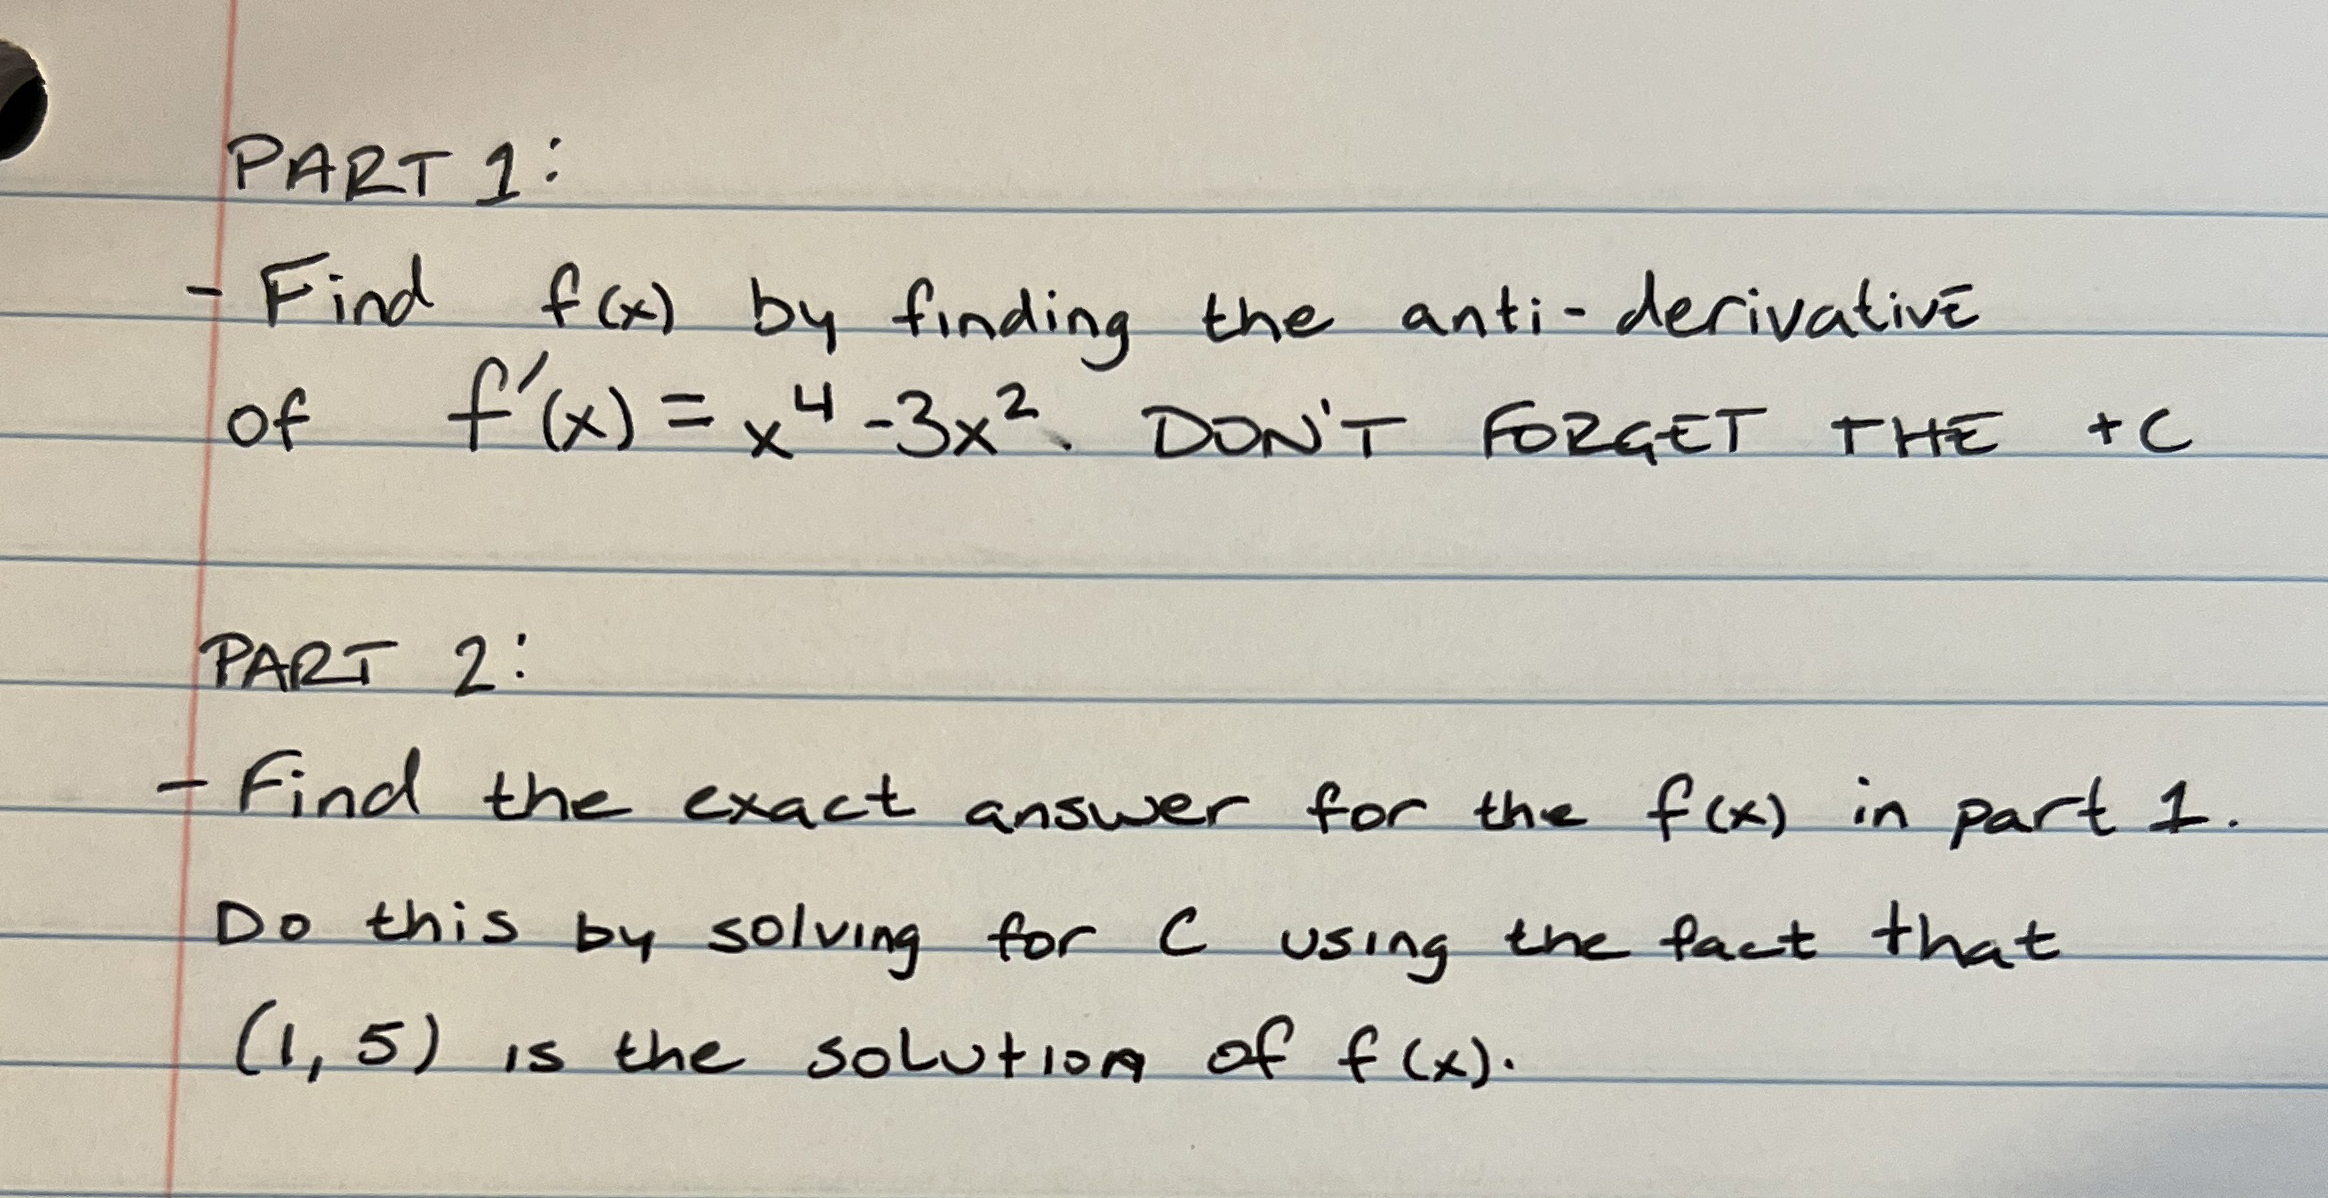 PART 1:
- Find f(x) by finding the anti-derivative
of f'(x) = x⁴ -3x². DON'T FORGET THE +C
PART 2:
- Find the exact answer for the f(x) in part 1.
Do this by solving for C using the fact that
(1, 5) is the solution of f(x).